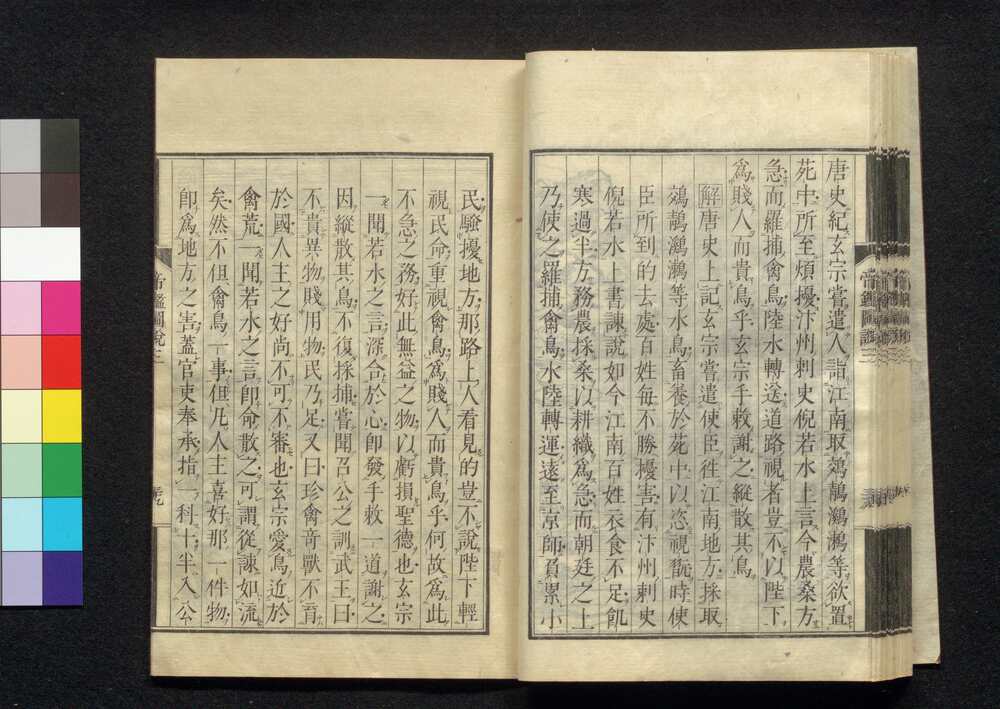 唐史紀玄宗嘗遣人詣江南取鵁鶄鸂鶒等欲置
苑中所至煩擾汴州刺史倪若水上言今農桑方
急而羅捕禽鳥陸水轉送道路視者豈不以陛下
爲賤人而貴鳥乎玄宗手敕謝之縱散其鳥
解唐史上記玄宗嘗遣使臣徃江南地方採取
鵁鶄鸂鶒等水鳥畜養於苑中以恣視翫時使
臣所到的去處百姓每不勝擾害有汴州刺史
倪若水上書諫說如今江南百姓衣食不足飢
寒過半方務農採桑以耕織爲急而朝廷之上
乃使之羅捕禽鳥水陸轉運遠至京師負累小
民騷擾地方那路上人看見的豈不說陛下輕
視民命重視禽鳥爲賤人而貴鳥乎何故爲此
不急之務好此無益之物以虧損聖德也玄宗
一聞若水之言深合於心卽發手敕一道謝之
因縱散其鳥不復採捕嘗聞召公之訓武王曰
不貴異物賤用物民乃足又曰珍禽奇獸不育
於國人主之好尚不可不審也玄宗愛鳥近於
禽荒一聞若水之言卽命散之可謂從諫如流
矣然不但禽鳥一事但凡人主喜好那一件物
卽爲地方之害蓋官吏奉承指一科十半入公
帝鑑圖說二